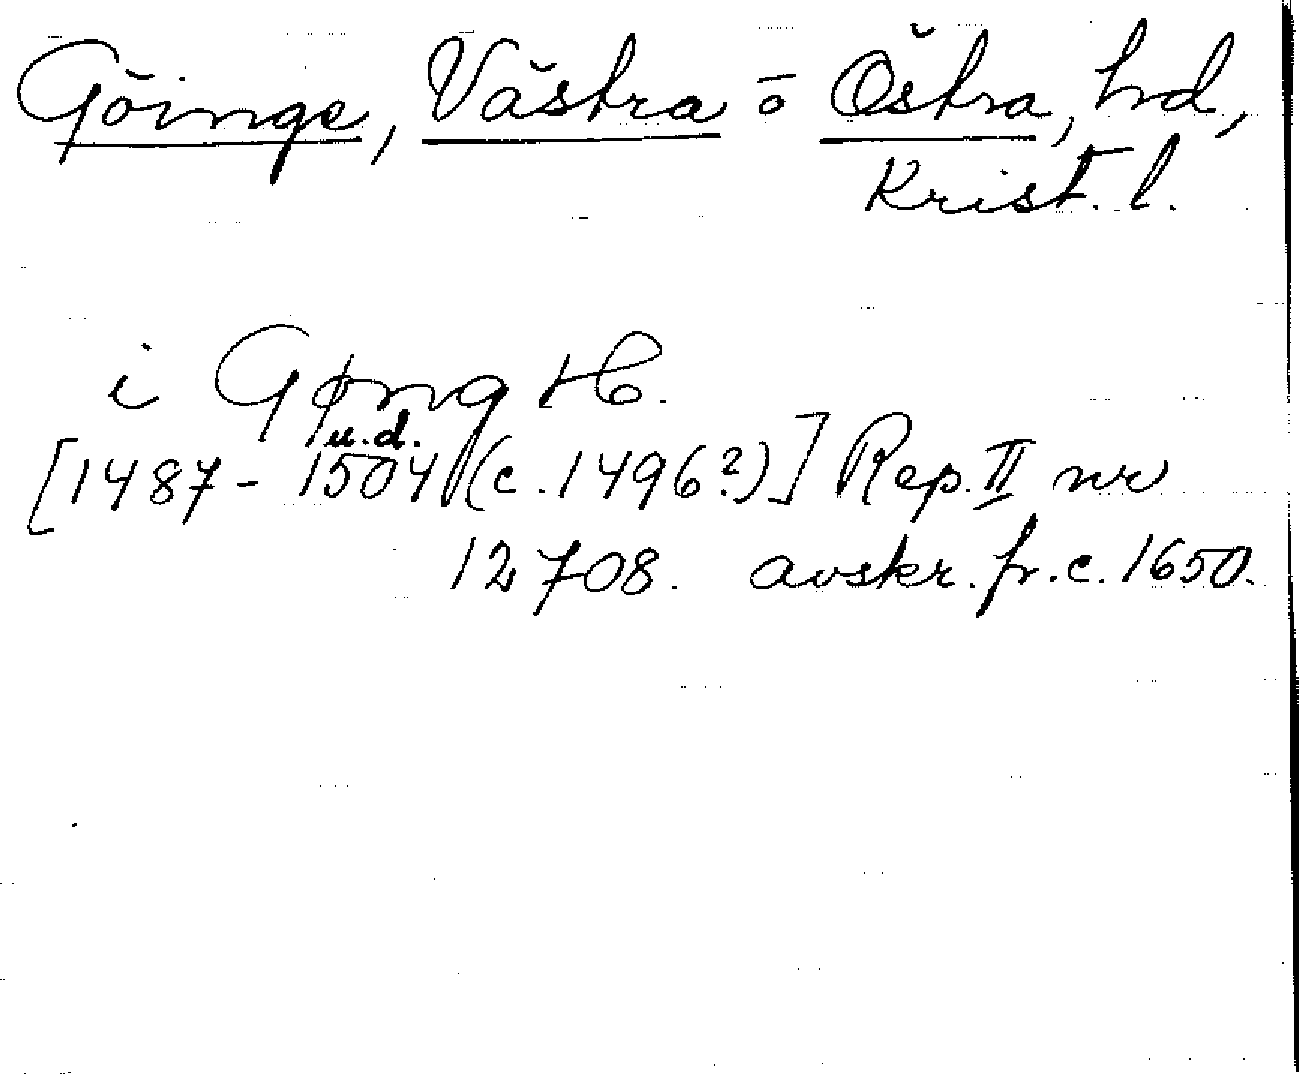 Göinge, Västra o Östra, hd,
Krist. l.
i Gøng H.
u.d.
[1487-1504 (c. 1496?)] Rep. II nr
12708. avskr. fr. c. 1650.